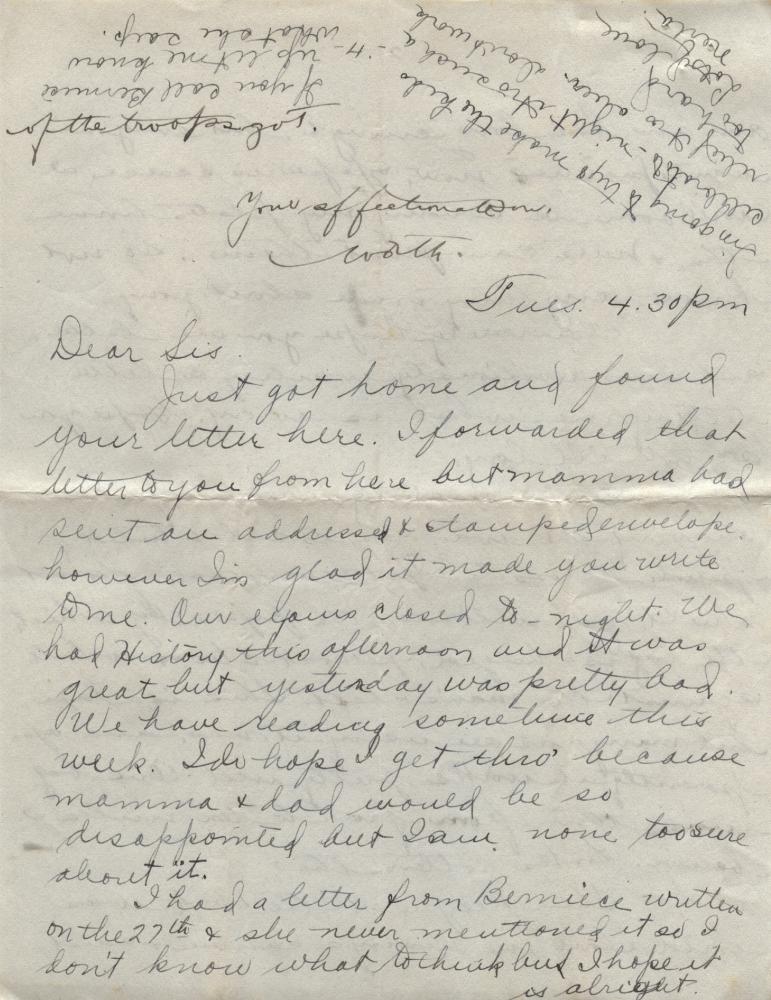 Tues. 4.30 pm
Dear Sis.
Just got home and found
your letter here. I forwarded that
letter to you from here but mamma had
sent an addressed & stamped envelope.
however I'm glad it made you write
to me. Our exams closed to-night. We
had History this afternoon and it was
great but yesterday was pretty bad.
We have reading sometime this
week. I do hope I get thro' because
mamma & dad would be so
disappointed but I am none too sure
about it.
I had a letter from Berniece written
on the 27th & she never mentioned it so I
don't know what to think but I hope it
is alright.
of the troops got.
Your affectionate
If you call Berniece
up let me know
what she says.
I'm going to try & make the kids
celebrate to-night
too hard
Lots of love